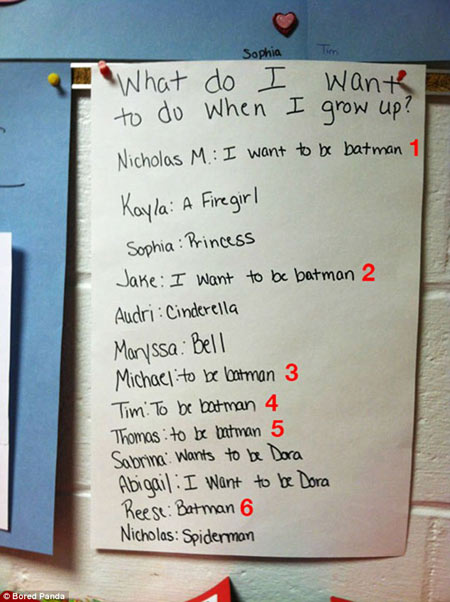 Sophia Tim
What do I want
to do when I grow up?
Nicholas M.: I want to be batman 1
Kayla: A Firegirl
Sophia: Princess
Jake: I want to be batman 2
Audri: Cinderella
Maryssa: Bell
Michael: to be batman 3
Tim: To be batman 4
Thomas: to be batman 5
Sabrina: Wants to be Dora
Abigail: I Want to be Dora
Reese: Batman 6
Nicholas: Spiderman
© Bored Panda